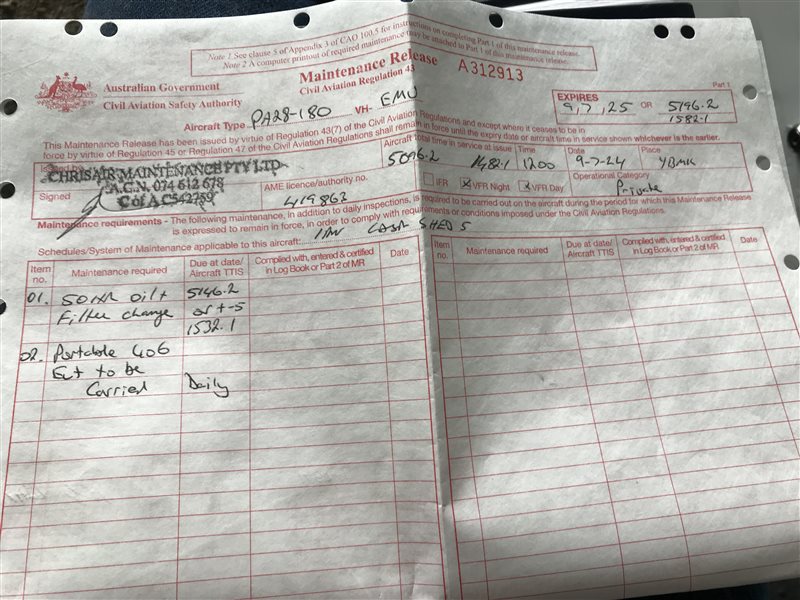 Note 1 See clause 5 of Appendix 3 of CAO 100.5 for instructions on completing Part 1 of this maintenance release.
Note 2 A computer printout of required maintenance may be attached to Part 1 of this maintenance release.
Australian Government
Civil Aviation Safety Authority
Maintenance Release
Civil Aviation Regulation 43
A312913
Part 1
EXPIRES
9,7,25 OR 5196.2
1582.1
Aircraft Type PA28-180 VH- EMU
This Maintenance Release has been issued by virtue of Regulation 43(7) of the Civil Aviation Regulations and except where it ceases to be in
force by virtue of Regulation 45 or Regulation 47 of the Civil Aviation Regulations shall remain in force until the expiry date or aircraft time in service shown whichever is the earlier.
CHRISAIR MAINTENANCE PTY LTD
A.C.N. 074 612 678
C of A C542759
Signed
AME licence/authority no.
419863
Aircraft total time in service at issue
5096.2 1482.1
Time
1200
Date
9-7-24
Place
YBMK
IFR
VFR Night
VFR Day
Operational Category
Private
Maintenance requirements - The following maintenance, in addition to daily inspections, is required to be carried out on the aircraft during the period for which this Maintenance Release
is expressed to remain in force, in order to comply with requirements or conditions imposed under the Civil Aviation Regulations.
Schedules/System of Maintenance applicable to this aircraft: SHED 5
Item no. Maintenance required Due at date/ Aircraft TTIS Complied with, entered & certified in Log Book or Part 2 of MR Date
Item no. Maintenance required Due at date/ Aircraft TTIS Complied with, entered & certified in Log Book or Part 2 of MR Date
01. 50 HR oil + 5146.2
Filter change or +-5
1532.1
02. Portable 406
ELT to be
Carried Daily